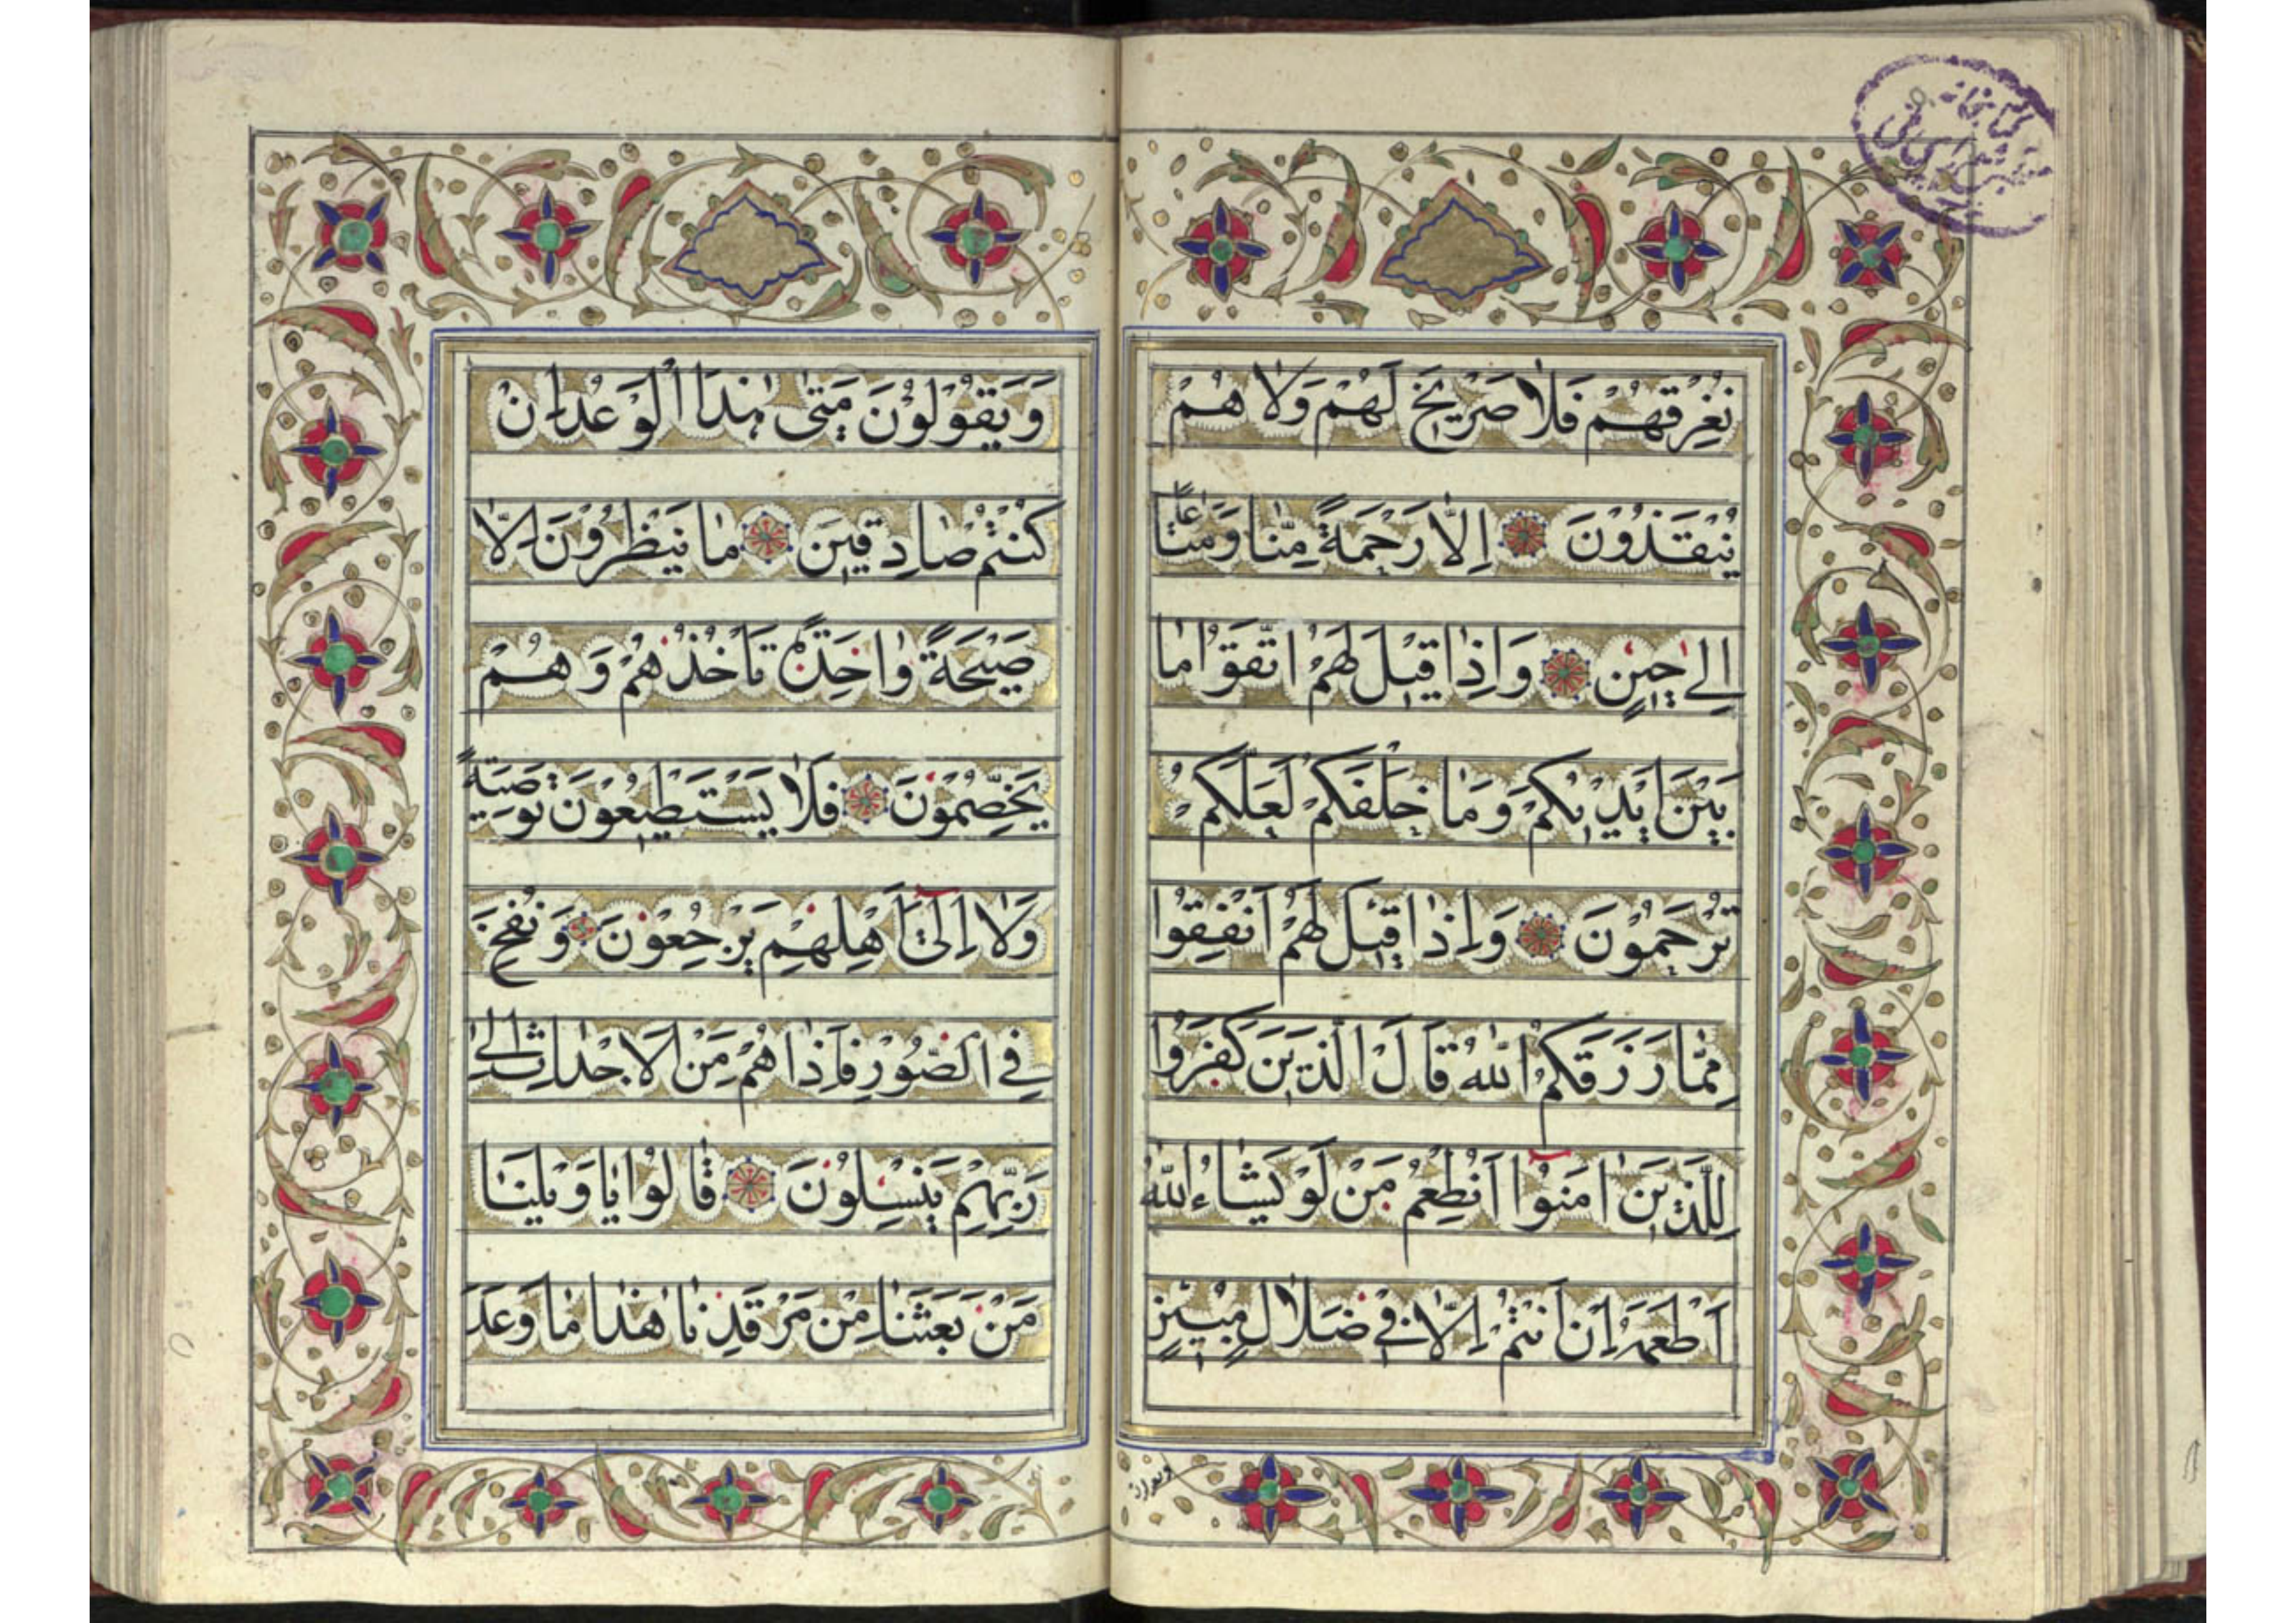 نُغْرِقْهُمْ فَلَا صَرِيخَ لَهُمْ وَلَا هُمْ
يُنْقَذُونَ اِلَّا رَحْمَةً مِنَّا وَمَتَاعًا
اِلىٰ حِينٍ وَاِذَا قِيلَ لَهُمُ اتَّقَوُا مَا
بَيْنَ اَيْدِيكُمْ وَمَا خَلْفَكُمْ لَعَلَّكُمْ
تُرْحَمُونَ وَاِذَا قِيلَ لَهُمْ اَنْفِقُوا
مِمَّا رَزَقَكُمُ اللّٰهُ قَالَ الَّذِينَ كَفَرُوا
لِلَّذِينَ اٰمَنُوا اَنُطْعِمُ مَنْ لَوْ يَشَاءُ اللّٰهُ
اَطْعَمَهُ اِنْ اَنْتُمْ اِلَّا فِي ضَلَالٍ مُبِينٍ
وَيَقُولُونَ مَتىٰ هٰذَا الْوَعْدُ اِنْ
كُنْتُمْ صَادِقِينَ مَا يَنْظُرُونَ اِلَّا
صَيْحَةً وَاحِدَةً تَأْخُذُهُمْ وَهُمْ
يَخِصِّمُونَ فَلَا يَسْتَطِيعُونَ تَوْصِيَةً
وَلَا اِلىٰ اَهْلِهِمْ يَرْجِعُونَ وَنُفِخَ
فِي الصُّورِ فَاِذَا هُمْ مِنَ الْاَجْدَاثِ اِلىٰ
رَبِّهِمْ يَنْسِلُونَ قَالُوا يَا وَيْلَنَا
مَنْ بَعَثَنَا مِنْ مَرْقَدِنَا هٰذَا مَا وَعَدَ